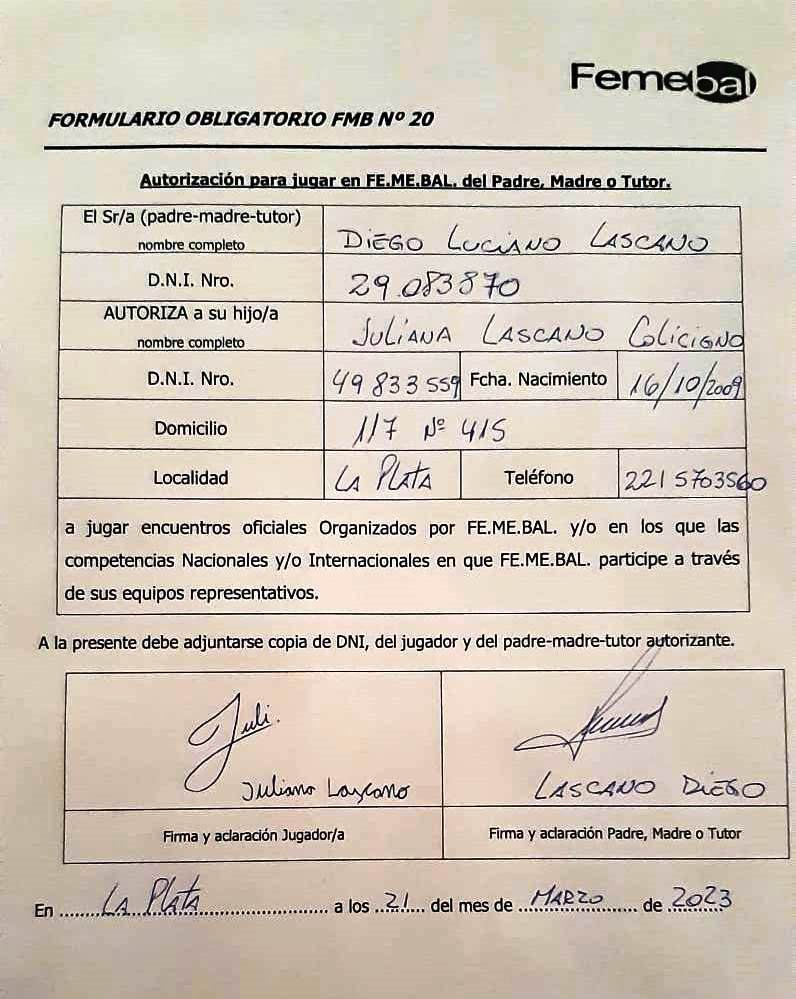 Femebal
FORMULARIO OBLIGATORIO FMB Nº 20
Autorización para jugar en FE.ME.BAL. del Padre, Madre o Tutor.
El Sr/a (padre-madre-tutor)
nombre completo
DIEGO LUCIANO LASCANO
D.N.I. Nro.
29.083870
AUTORIZA a su hijo/a
nombre completo
JULIANA LASCANO COLICIGNO
D.N.I. Nro.
49 833 559
Fcha. Nacimiento
16/10/2009
Domicilio
117 Nº 415
Localidad
LA PLATA
Teléfono
221 5703560
a jugar encuentros oficiales Organizados por FE.ME.BAL. y/o en los que las
competencias Nacionales y/o Internacionales en que FE.ME.BAL. participe a través
de sus equipos representativos.
A la presente debe adjuntarse copia de DNI, del jugador y del padre-madre-tutor autorizante.
Juli.
Juliana Lascano
LASCANO DIEGO
Firma y aclaración Jugador/a
Firma y aclaración Padre, Madre o Tutor
En ........LA PLATA........................ a los ..21.... del mes de ..MARZO........ de .2023